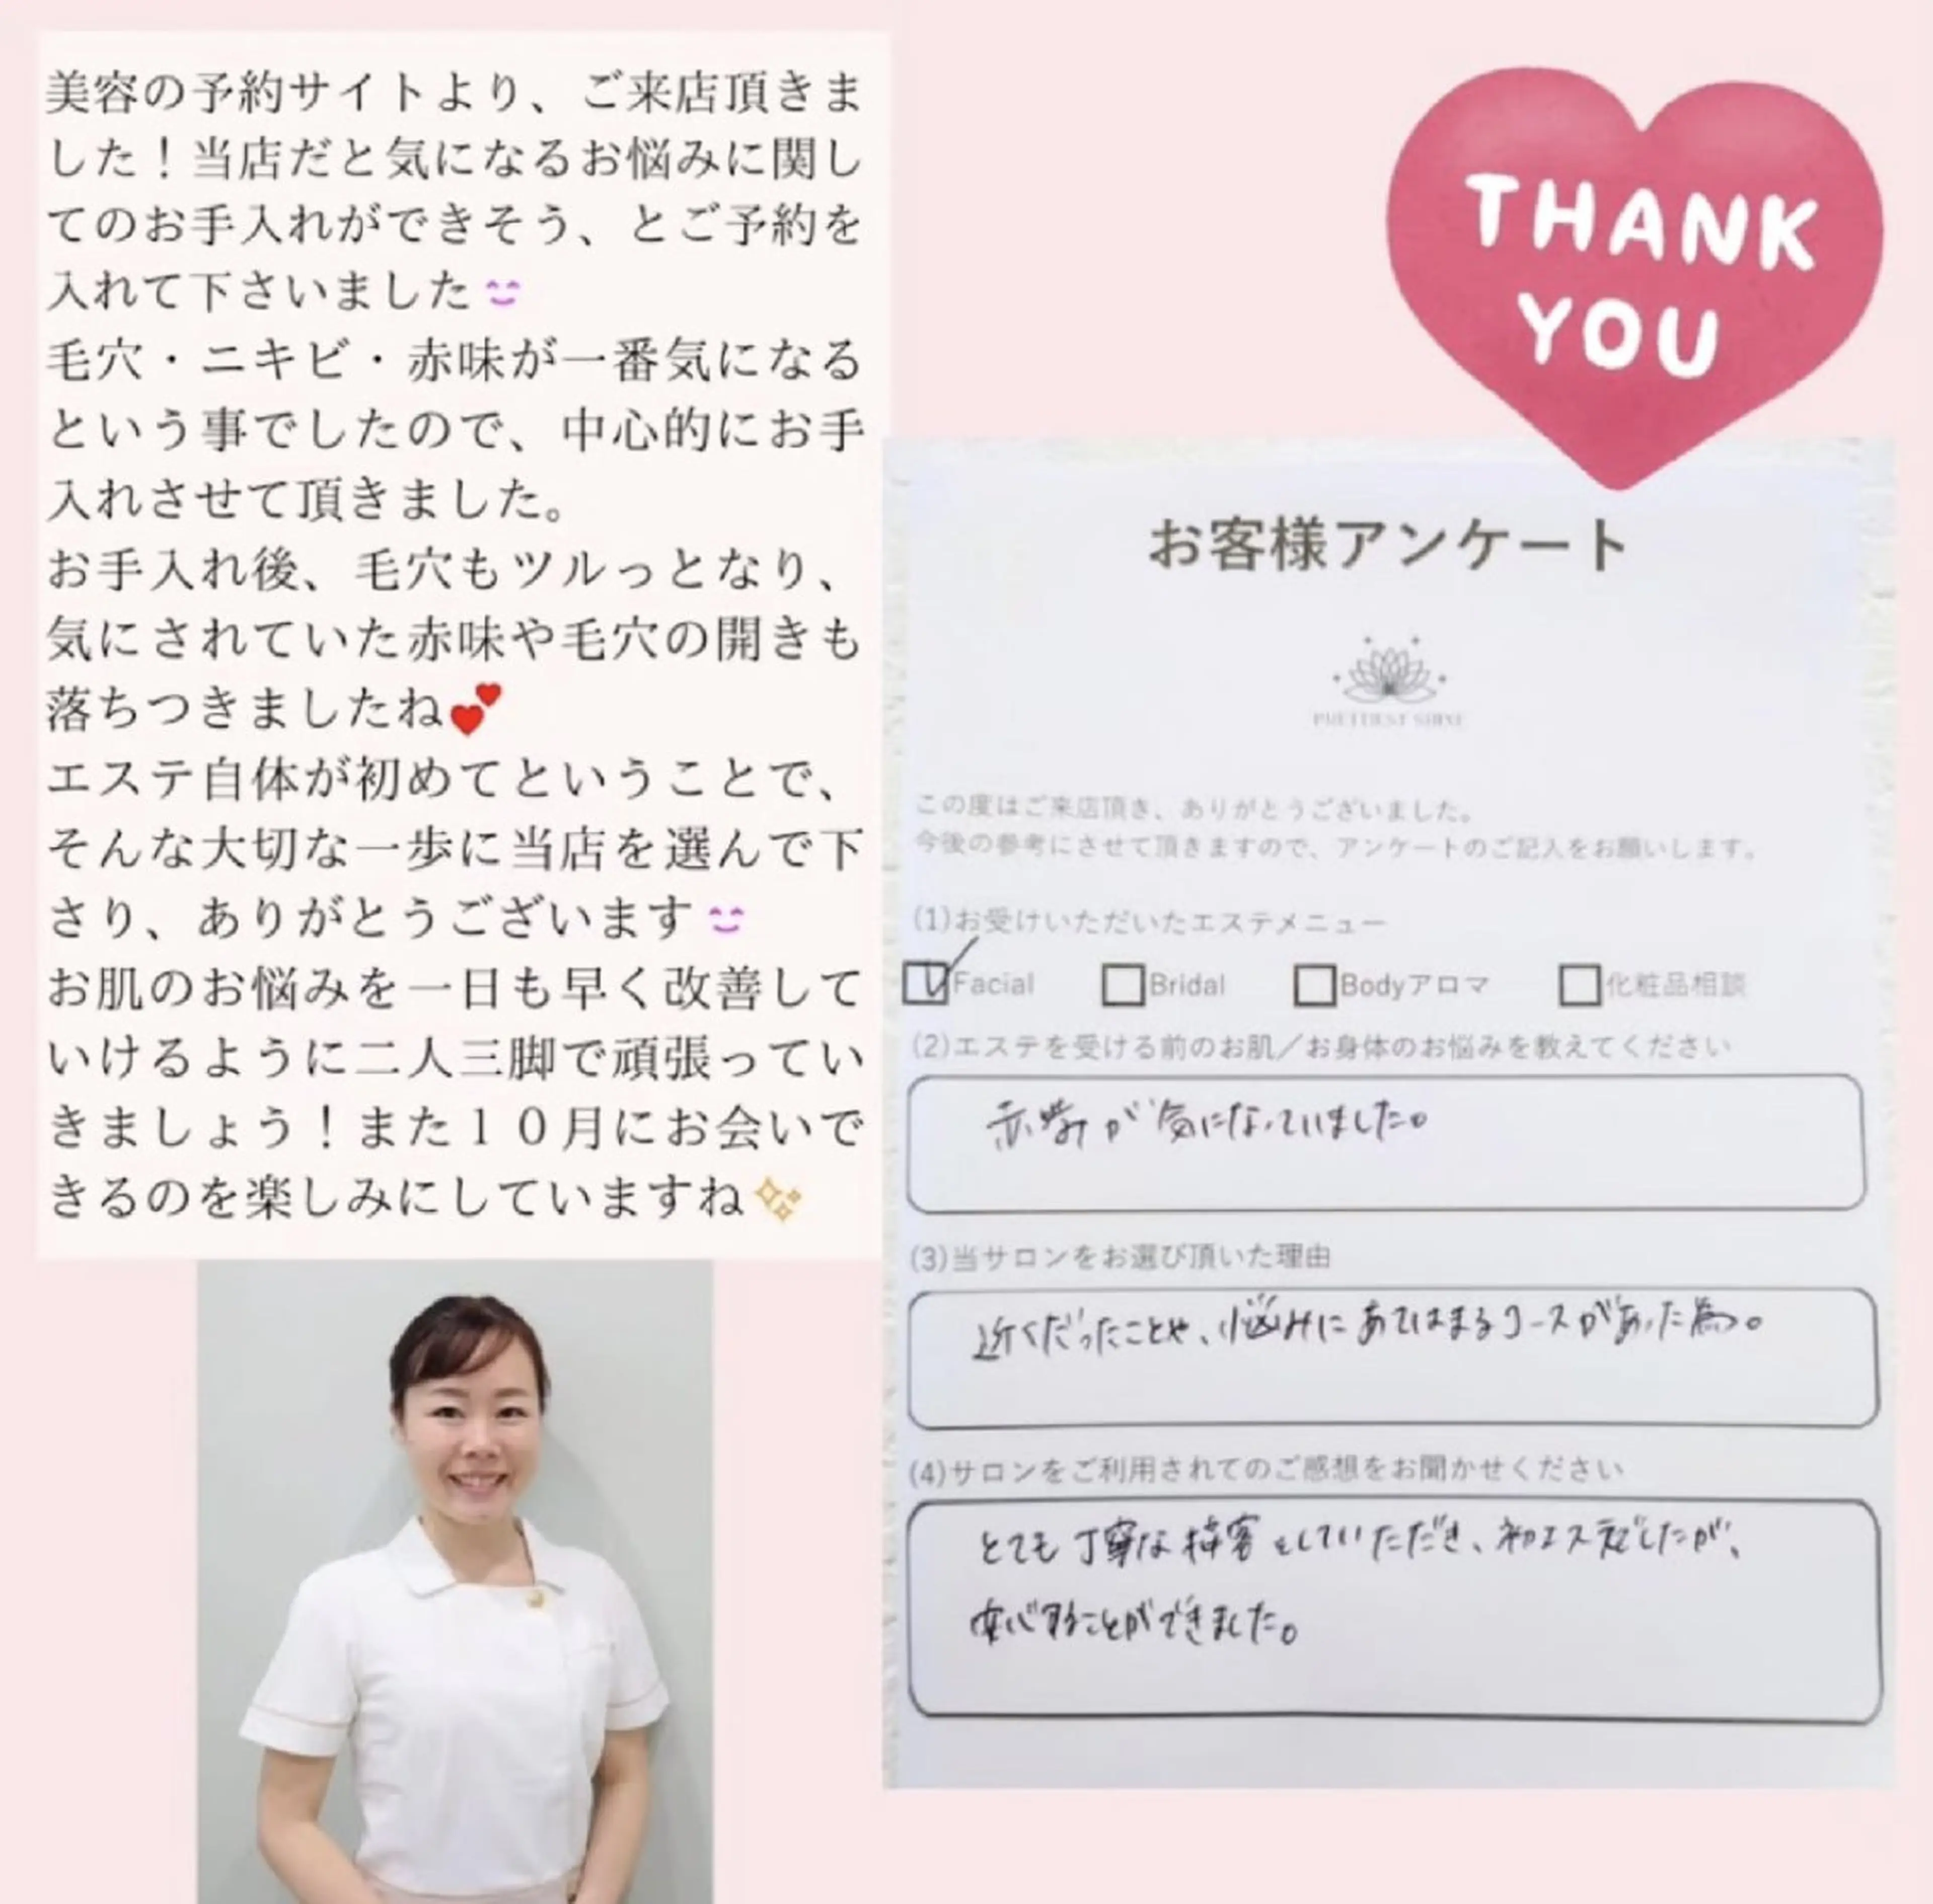 美容の予約サイトより、ご来店頂きま
した！当店だと気になるお悩みに関し
てのお手入れができそう、とご予約を
入れて下さいました
毛穴・ニキビ・赤味が一番気になる
という事でしたので、中心的にお手
入れさせて頂きました。
お手入れ後、毛穴もツルっとなり、
気にされていた赤味や毛穴の開きも
落ちつきましたね💕
エステ自体が初めてということで、
そんな大切な一歩に当店を選んで下
さり、ありがとうございます
お肌のお悩みを一日も早く改善して
いけるように二人三脚で頑張ってい
きましょう！また１０月にお会いで
きるのを楽しみにしていますね✨
THANK
YOU
お客様アンケート
PRETTIEST SHINE
この度はご来店頂き、ありがとうございました。
今後の参考にさせて頂きますので、アンケートのご記入をお願いします。
(1)お受けいただいたエステメニュー
Facial Bridal Bodyアロマ 化粧品相談
(2)エステを受ける前のお肌／お身体のお悩みを教えてください
が気になっていました。
(3)当サロンをお選び頂いた理由
近くだったことや、悩みにあてはまるコースがあった為。
(4)サロンをご利用されてのご感想をお聞かせください
とても丁寧な接客をしていただき、初エステでしたが、
安心することができました。